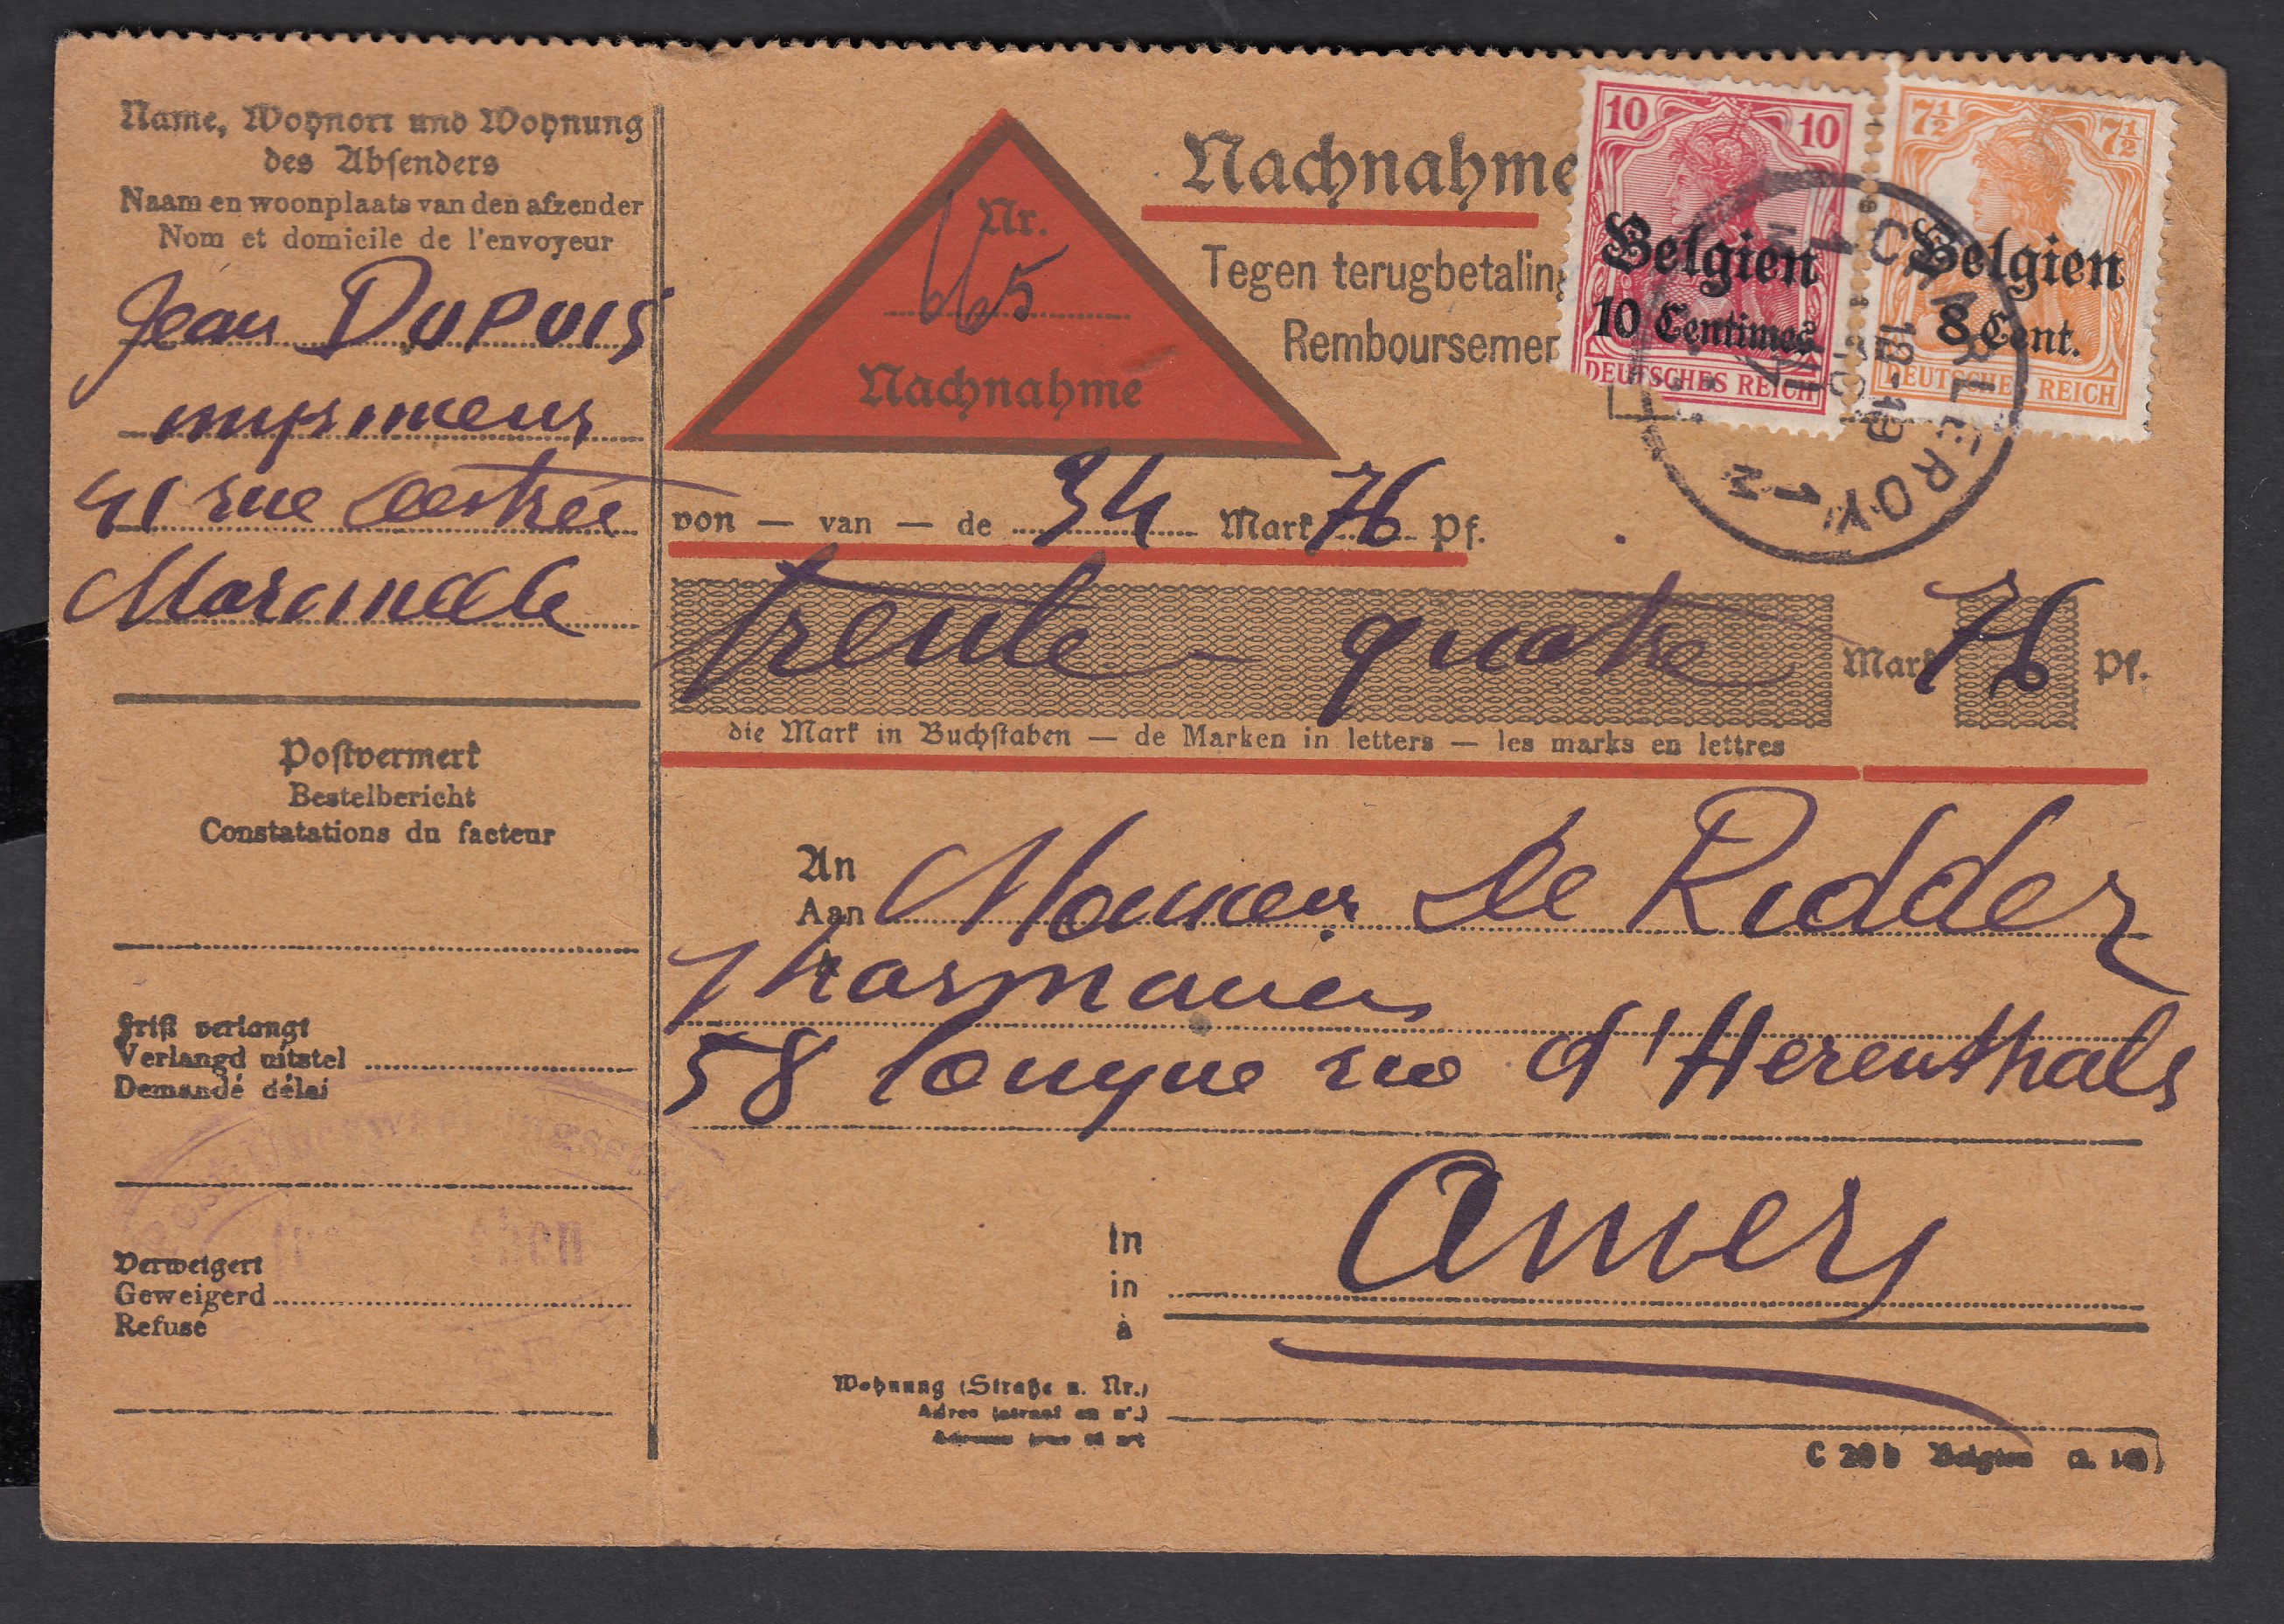 Name, Wohnort und Wohnung
des Absenders
Naam en woonplaats van den afzender
Nom et domicile de l'envoyeur
Jean DUPUIS
imprimeur
41 rue Destrée
Marcinelle
Postvermerk
Bestelbericht
Constatations du facteur
Frist verlangt
Verlangd uitstel
Demandé délai
Verweigert
Geweigerd
Refusé
Nr.
665
Nachnahme
Nachnahme
Tegen terugbetaling
Remboursemen
10 10
Belgien
10 Centimes
DEUTSCHES REICH
7½ 7½
Belgien
8 Cent.
DEUTSCHES REICH
CHARLEROY 1
von — van — de 34 Mark 76 Pf.
trente - quatre Mark 76 Pf.
die Mark in Buchstaben — de Marken in letters — les marks en lettres
An
Aan
à
Monsieur De Ridder
Pharmacien
58 longue rue d'Herenthals
In
in
à
Anvers
Wohnung (Straße u. Nr.)
Adres (straat en nr.)
C 20 b Belgien